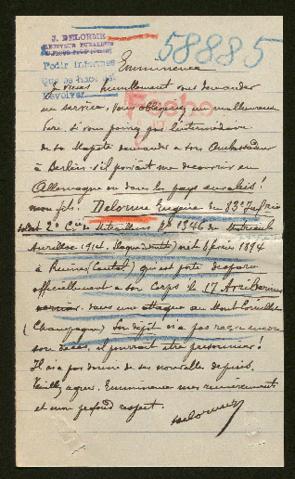 J. DELORME
58885
Eminence
Je viens humblement vous demander
un service, vous obligerez un malheureux
Père, si vous pouviez par l'intermédiaire
de Sa Majesté demander à son Ambassadeur
à Berlin s'il pouvait me découvrir en
Allemagne ou dans les pays envahis!
mon fils. Delorme Eugène du 83e Inf
soldat 2e Cie de Mitrailleurs 1346
Aurillac 1914. né le 4 février 1894
à (Cantal), qui est porté disparu
officiellement à son Corps le 17 Avril dernier
dans une attaque au Mont Cornillet
(Champagne) Son dépôt n'a pas reçu encore
son décès, il pourrait être prisonnier!
Il n'a pas donné de ses nouvelles depuis.
Veuillez agréer, Eminence mes remerciements
et mon profond respect.
Delorme